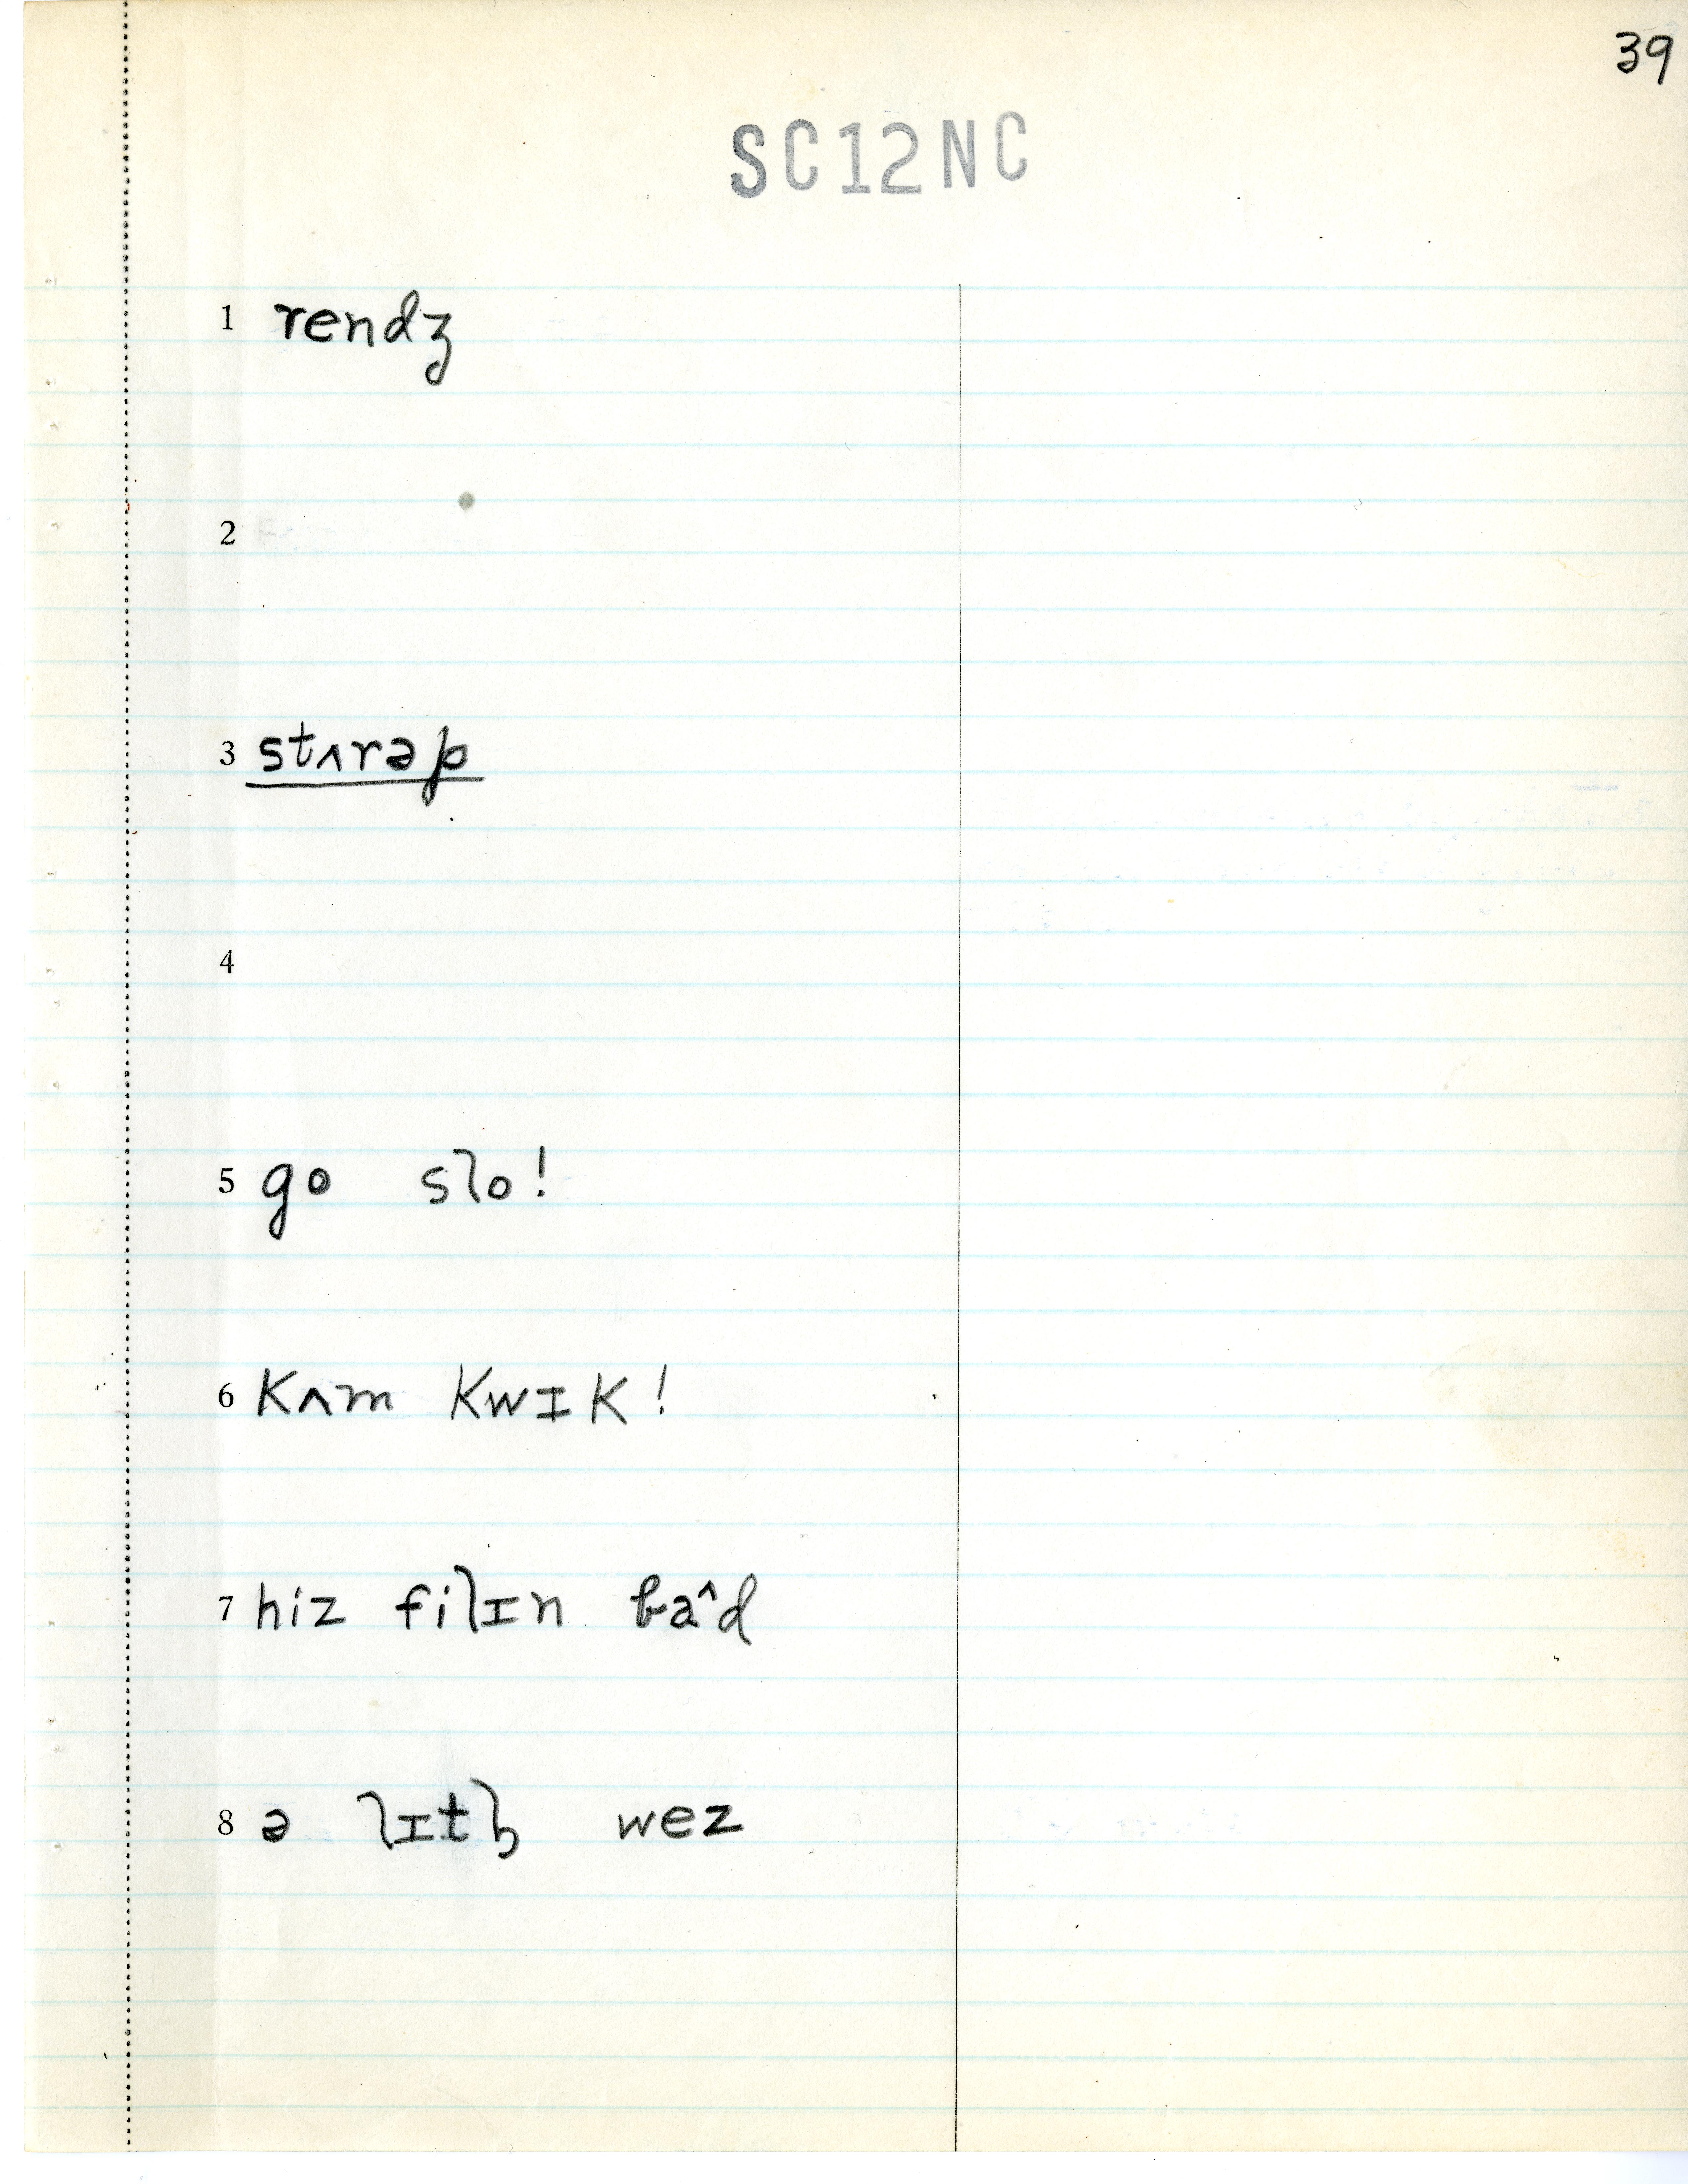 39
SC12NC
1 rendʒ
2
3 stʌrəp
4
5 go slo!
6 kʌm kwɪk!
7 hiz filɪn ba^d
8 ə lɪtḷ wez